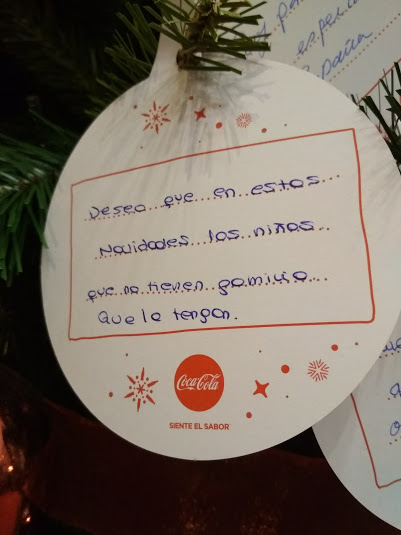 Deseo que en estas
Navidades los niños
que no tienen gamicia
Que la tengan.
Coca-Cola
SIENTE EL SABOR